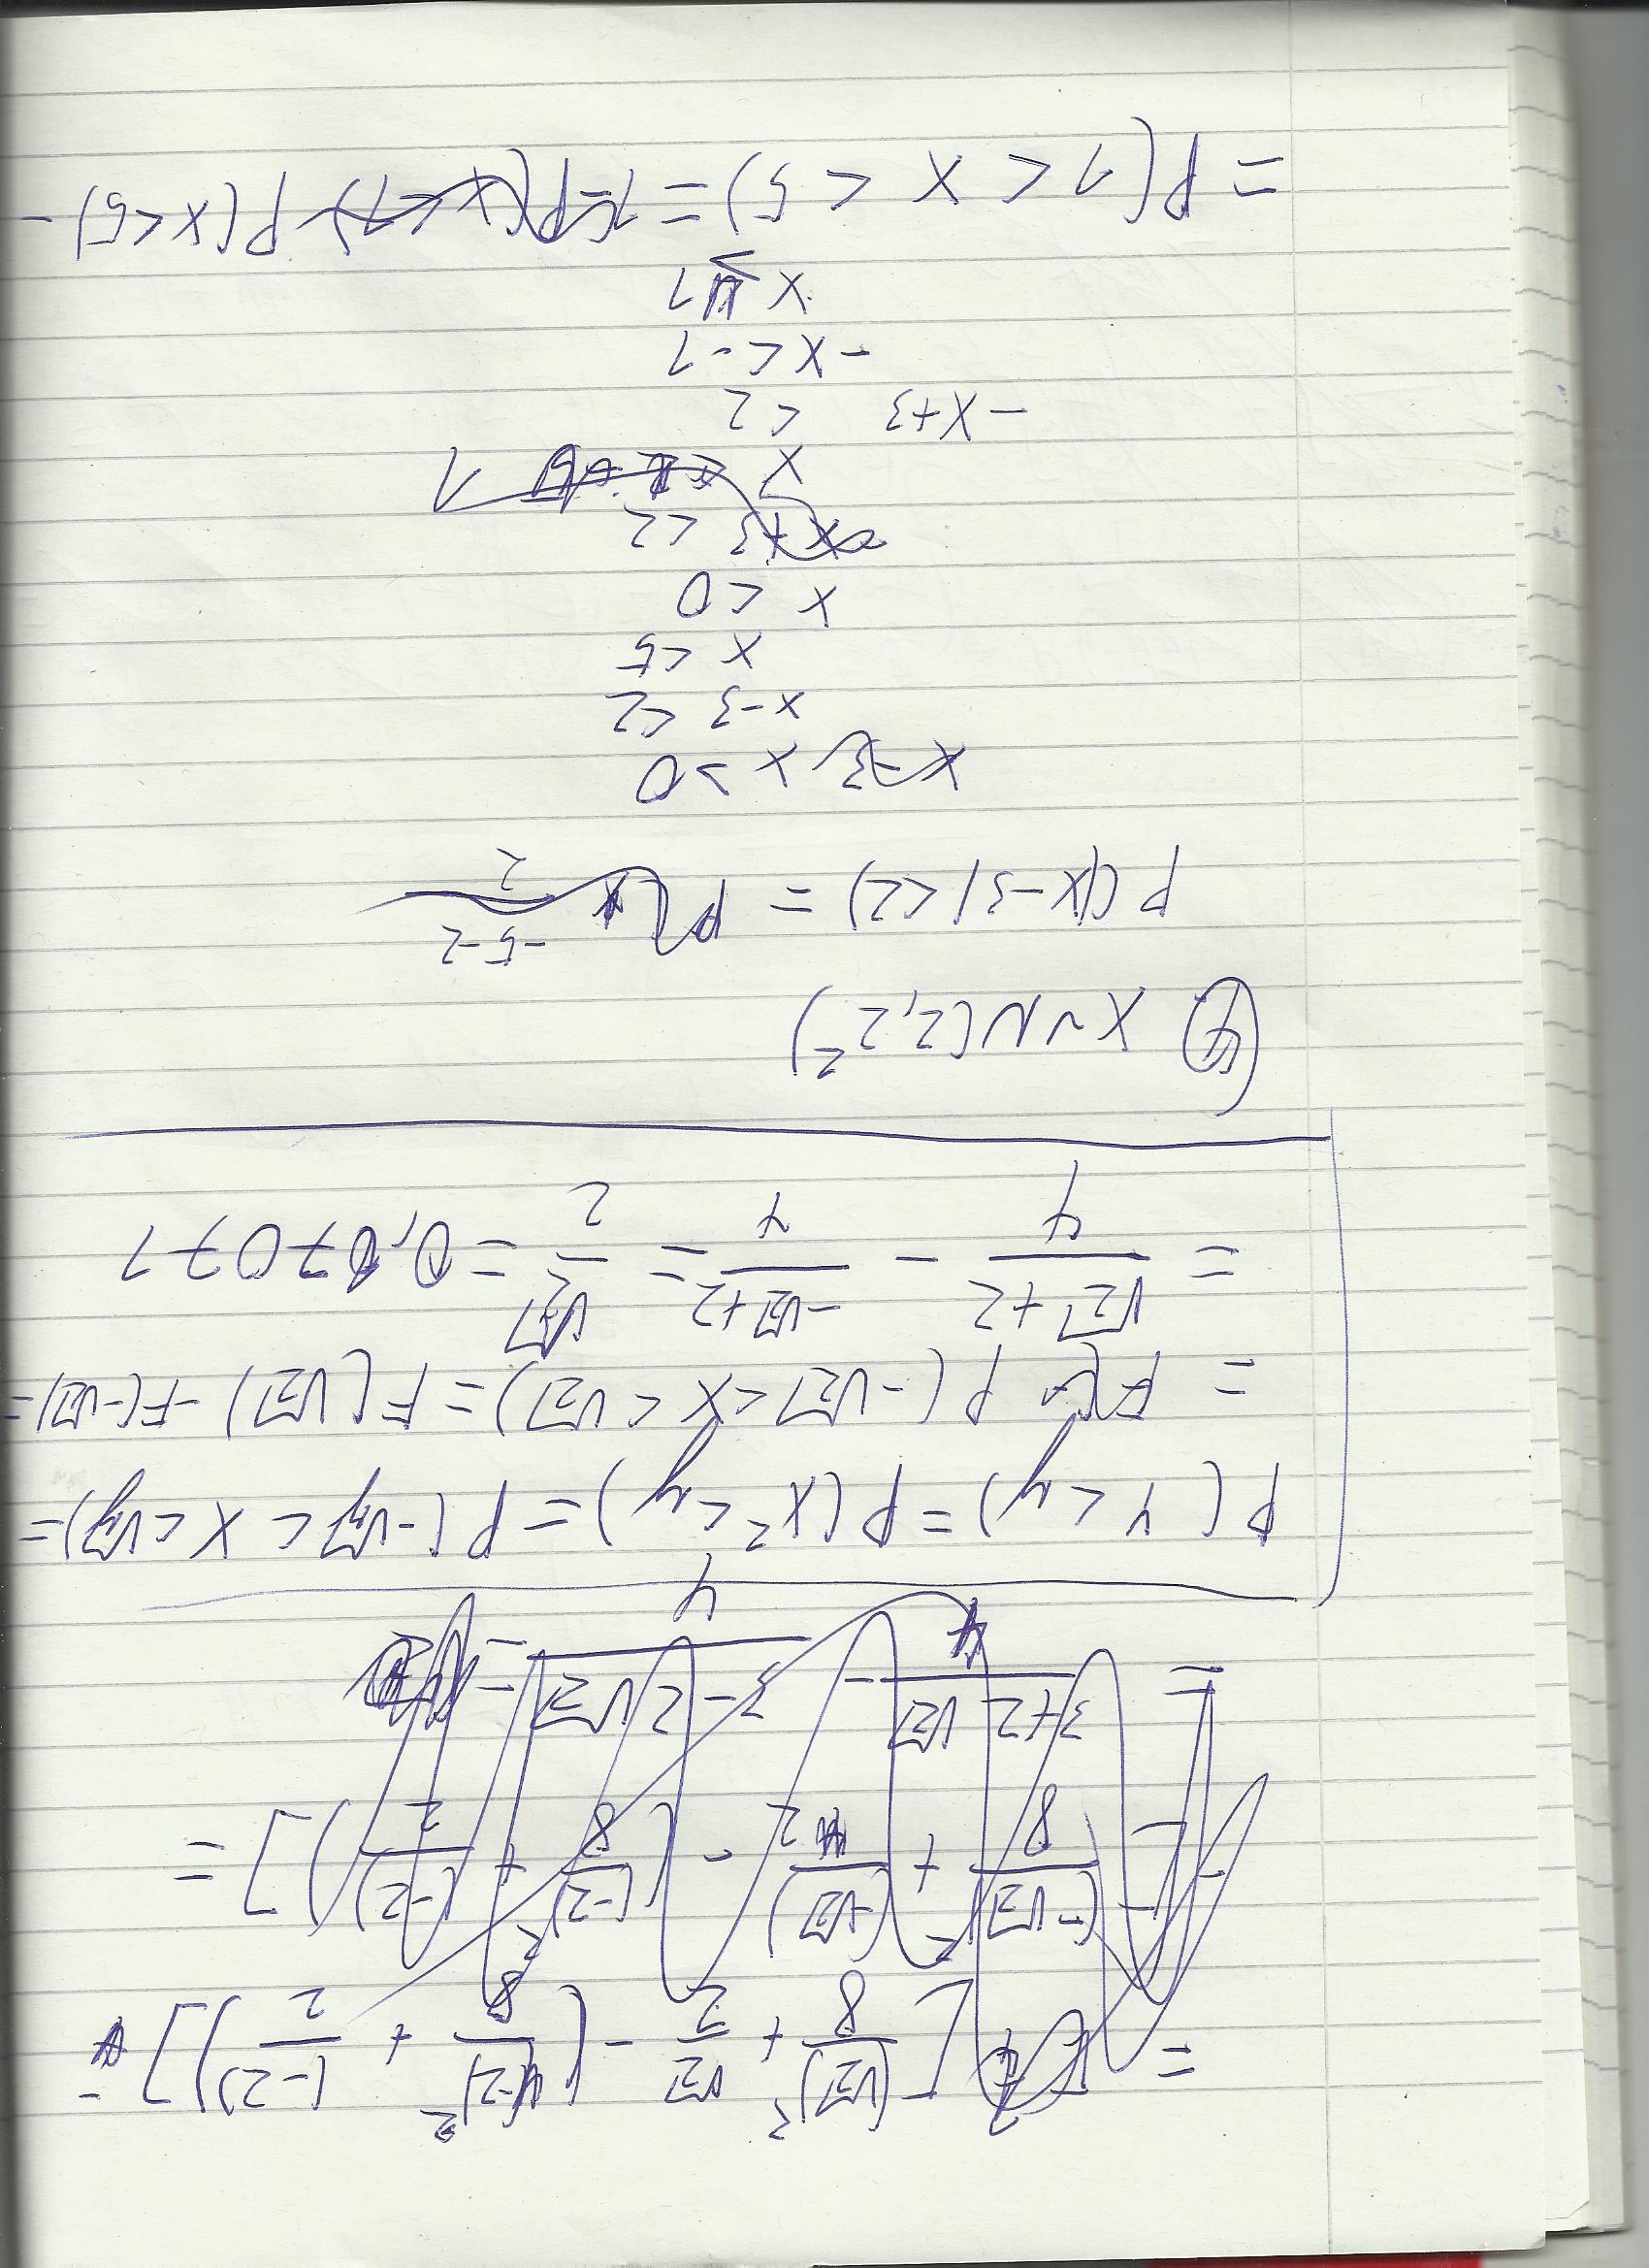 = [ (√2)³/8 + √2/2 - ( (-2)²/8 + (-2)/2 ) ] -
- [ (-√2)²/8 + (-√2)/2 - ( (-2)²/8 + (-2)/2 ) ] =
= 3+2√2/4 - 3-2√2/4 =
P(Y<y) = P(X²<y) = P(-√y < X < √y) =
= P(-√2 < X < √2) = F(√2) - F(-√2) =
= √2+2/4 - -√2+2/4 = √2/2 = 0,7071
④ X~N(2,2²)
P(|X-3|<2) = P( -5-2/2
x-3 x > 0
x-3 < 2
x < 5
x < 0
-x+3 < 2
x 1
-x+3 < 2
-x < -1
x > 1
= P(1 < X < 5) = P(X<1) P(X<5) -